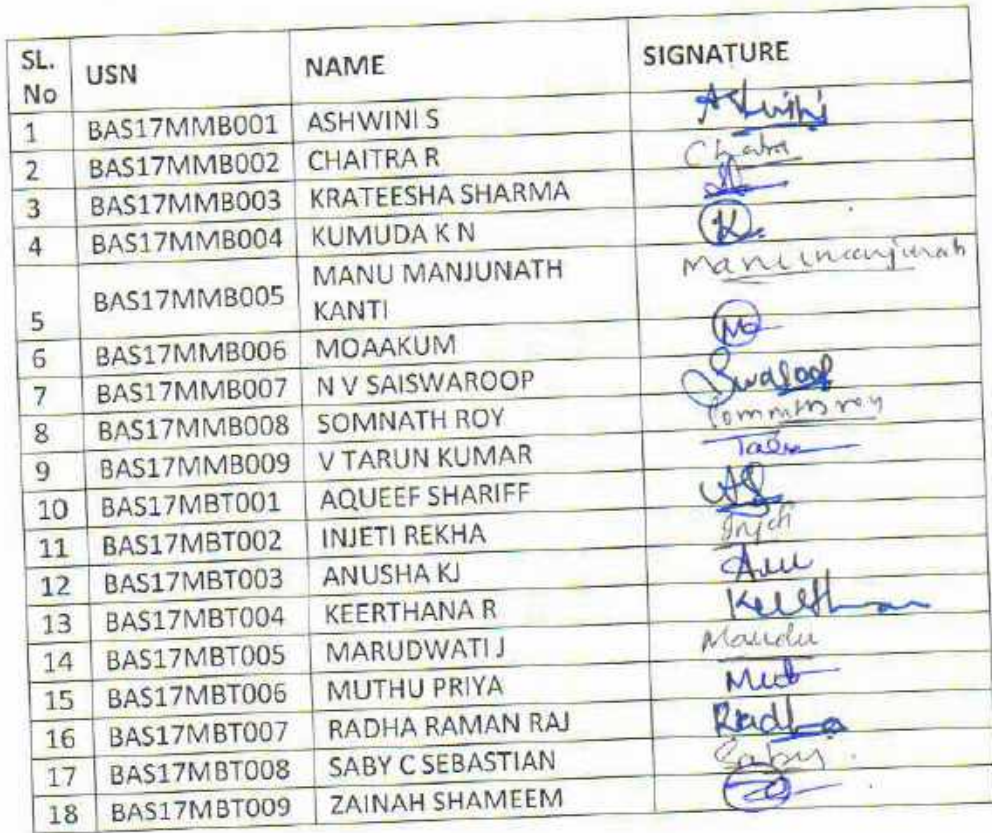 SL. No USN NAME SIGNATURE
1 BAS17MMB001 ASHWINI S Ashwini
2 BAS17MMB002 CHAITRA R Chaitra
3 BAS17MMB003 KRATEESHA SHARMA
4 BAS17MMB004 KUMUDA K N K.
5 BAS17MMB005 MANU MANJUNATH KANTI Manumanjunath
6 BAS17MMB006 MOAAKUM Mo
7 BAS17MMB007 N V SAISWAROOP Swaroop
8 BAS17MMB008 SOMNATH ROY
9 BAS17MMB009 V TARUN KUMAR
10 BAS17MBT001 AQUEEF SHARIFF AS
11 BAS17MBT002 INJETI REKHA Injeti
12 BAS17MBT003 ANUSHA KJ Anu
13 BAS17MBT004 KEERTHANA R
14 BAS17MBT005 MARUDWATI J
15 BAS17MBT006 MUTHU PRIYA Mut
16 BAS17MBT007 RADHA RAMAN RAJ Radha
17 BAS17MBT008 SABY C SEBASTIAN Saby.
18 BAS17MBT009 ZAINAH SHAMEEM